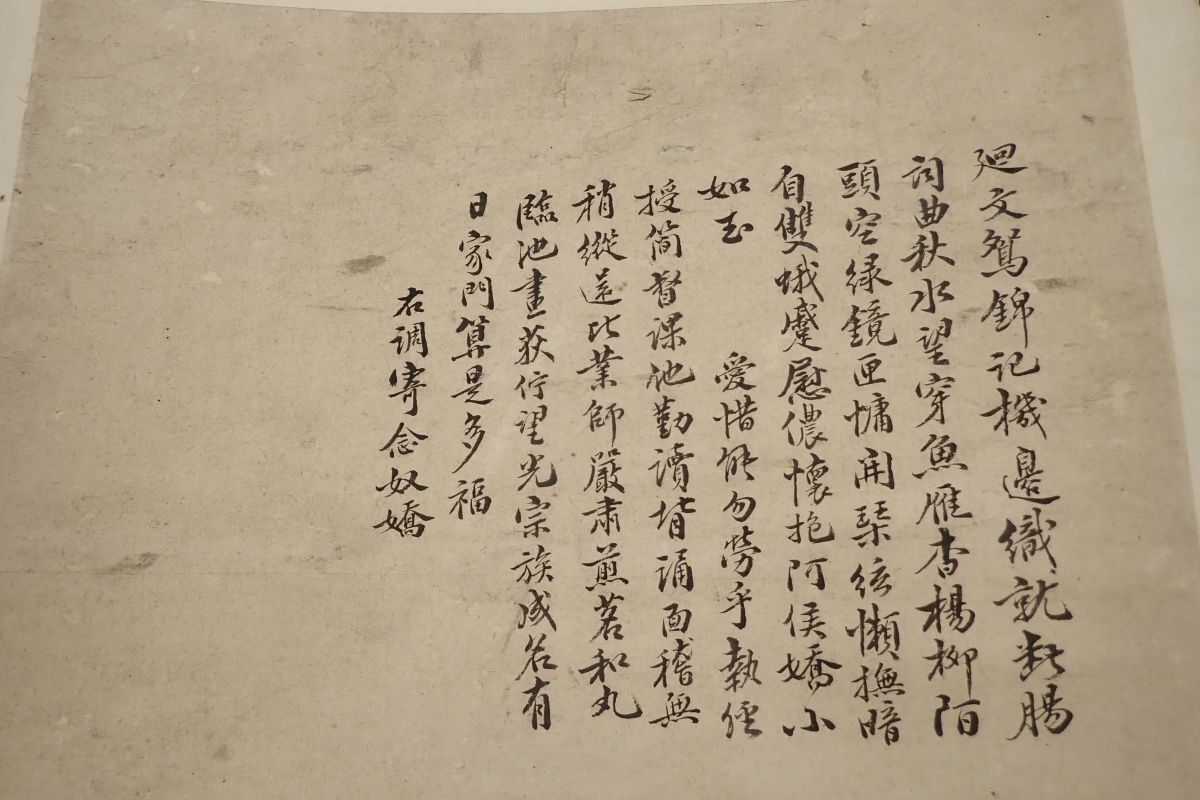 廻文鴛錦記機邊織就斷腸
詞曲秋水望穿魚雁杳楊柳陌
頭空綠鏡匣慵開琹絃懶撫暗
自雙蛾蹙慰儂懷抱阿侯嬌小
如玉　愛惜能勿勞乎執經
授簡督課池勤讀背誦面稽無
稍縱遠比業師嚴肅煎茗和丸
臨池畫荻佇望光宗族成名有
日家門算是多福
右調寄念奴嬌